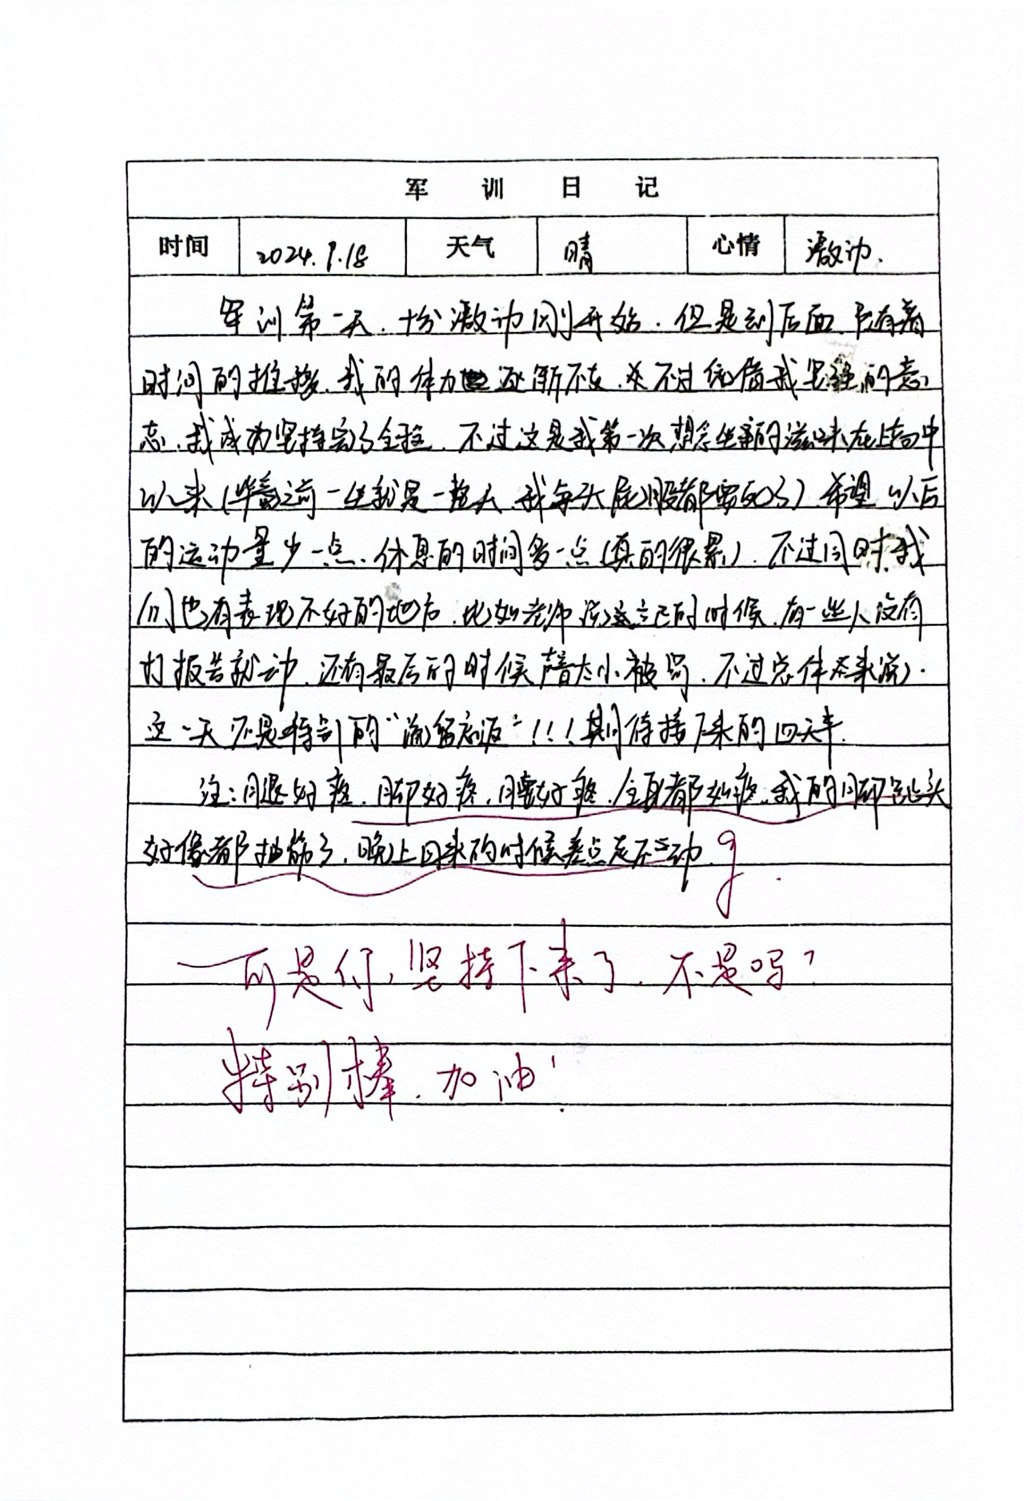 军训日记
时间 2024.9.18 天气 晴 心情 激动.
军训第一天,十分激动刚开始.但是到后面,随着
时间的推移,我的体力逐渐不支,不过凭借我坚强的意
志,我成功坚持完了全程.不过这是我第一次想念坐的滋味在上初中
以来(毕竟之前一坐就是一整天,我每天屁股都要的了)希望以后
的运动量少一点.休息的时间多一点(真的很累).不过同时,我
们也有表现不好的地方,比如老师说立正的时候,有一些人没有
打报告就动,还有最后的时候声音太小被罚,不过总体来说,
这一天还是特别的"流"!!!期待接下来的四天半.
注:腿好疼,脚好疼,腰好疼,全身都好疼,我的脚趾头
好像都抽筋了,晚上回来的时候差点走不动.
可是你,坚持下来了,不是吗?
特别棒,加油!